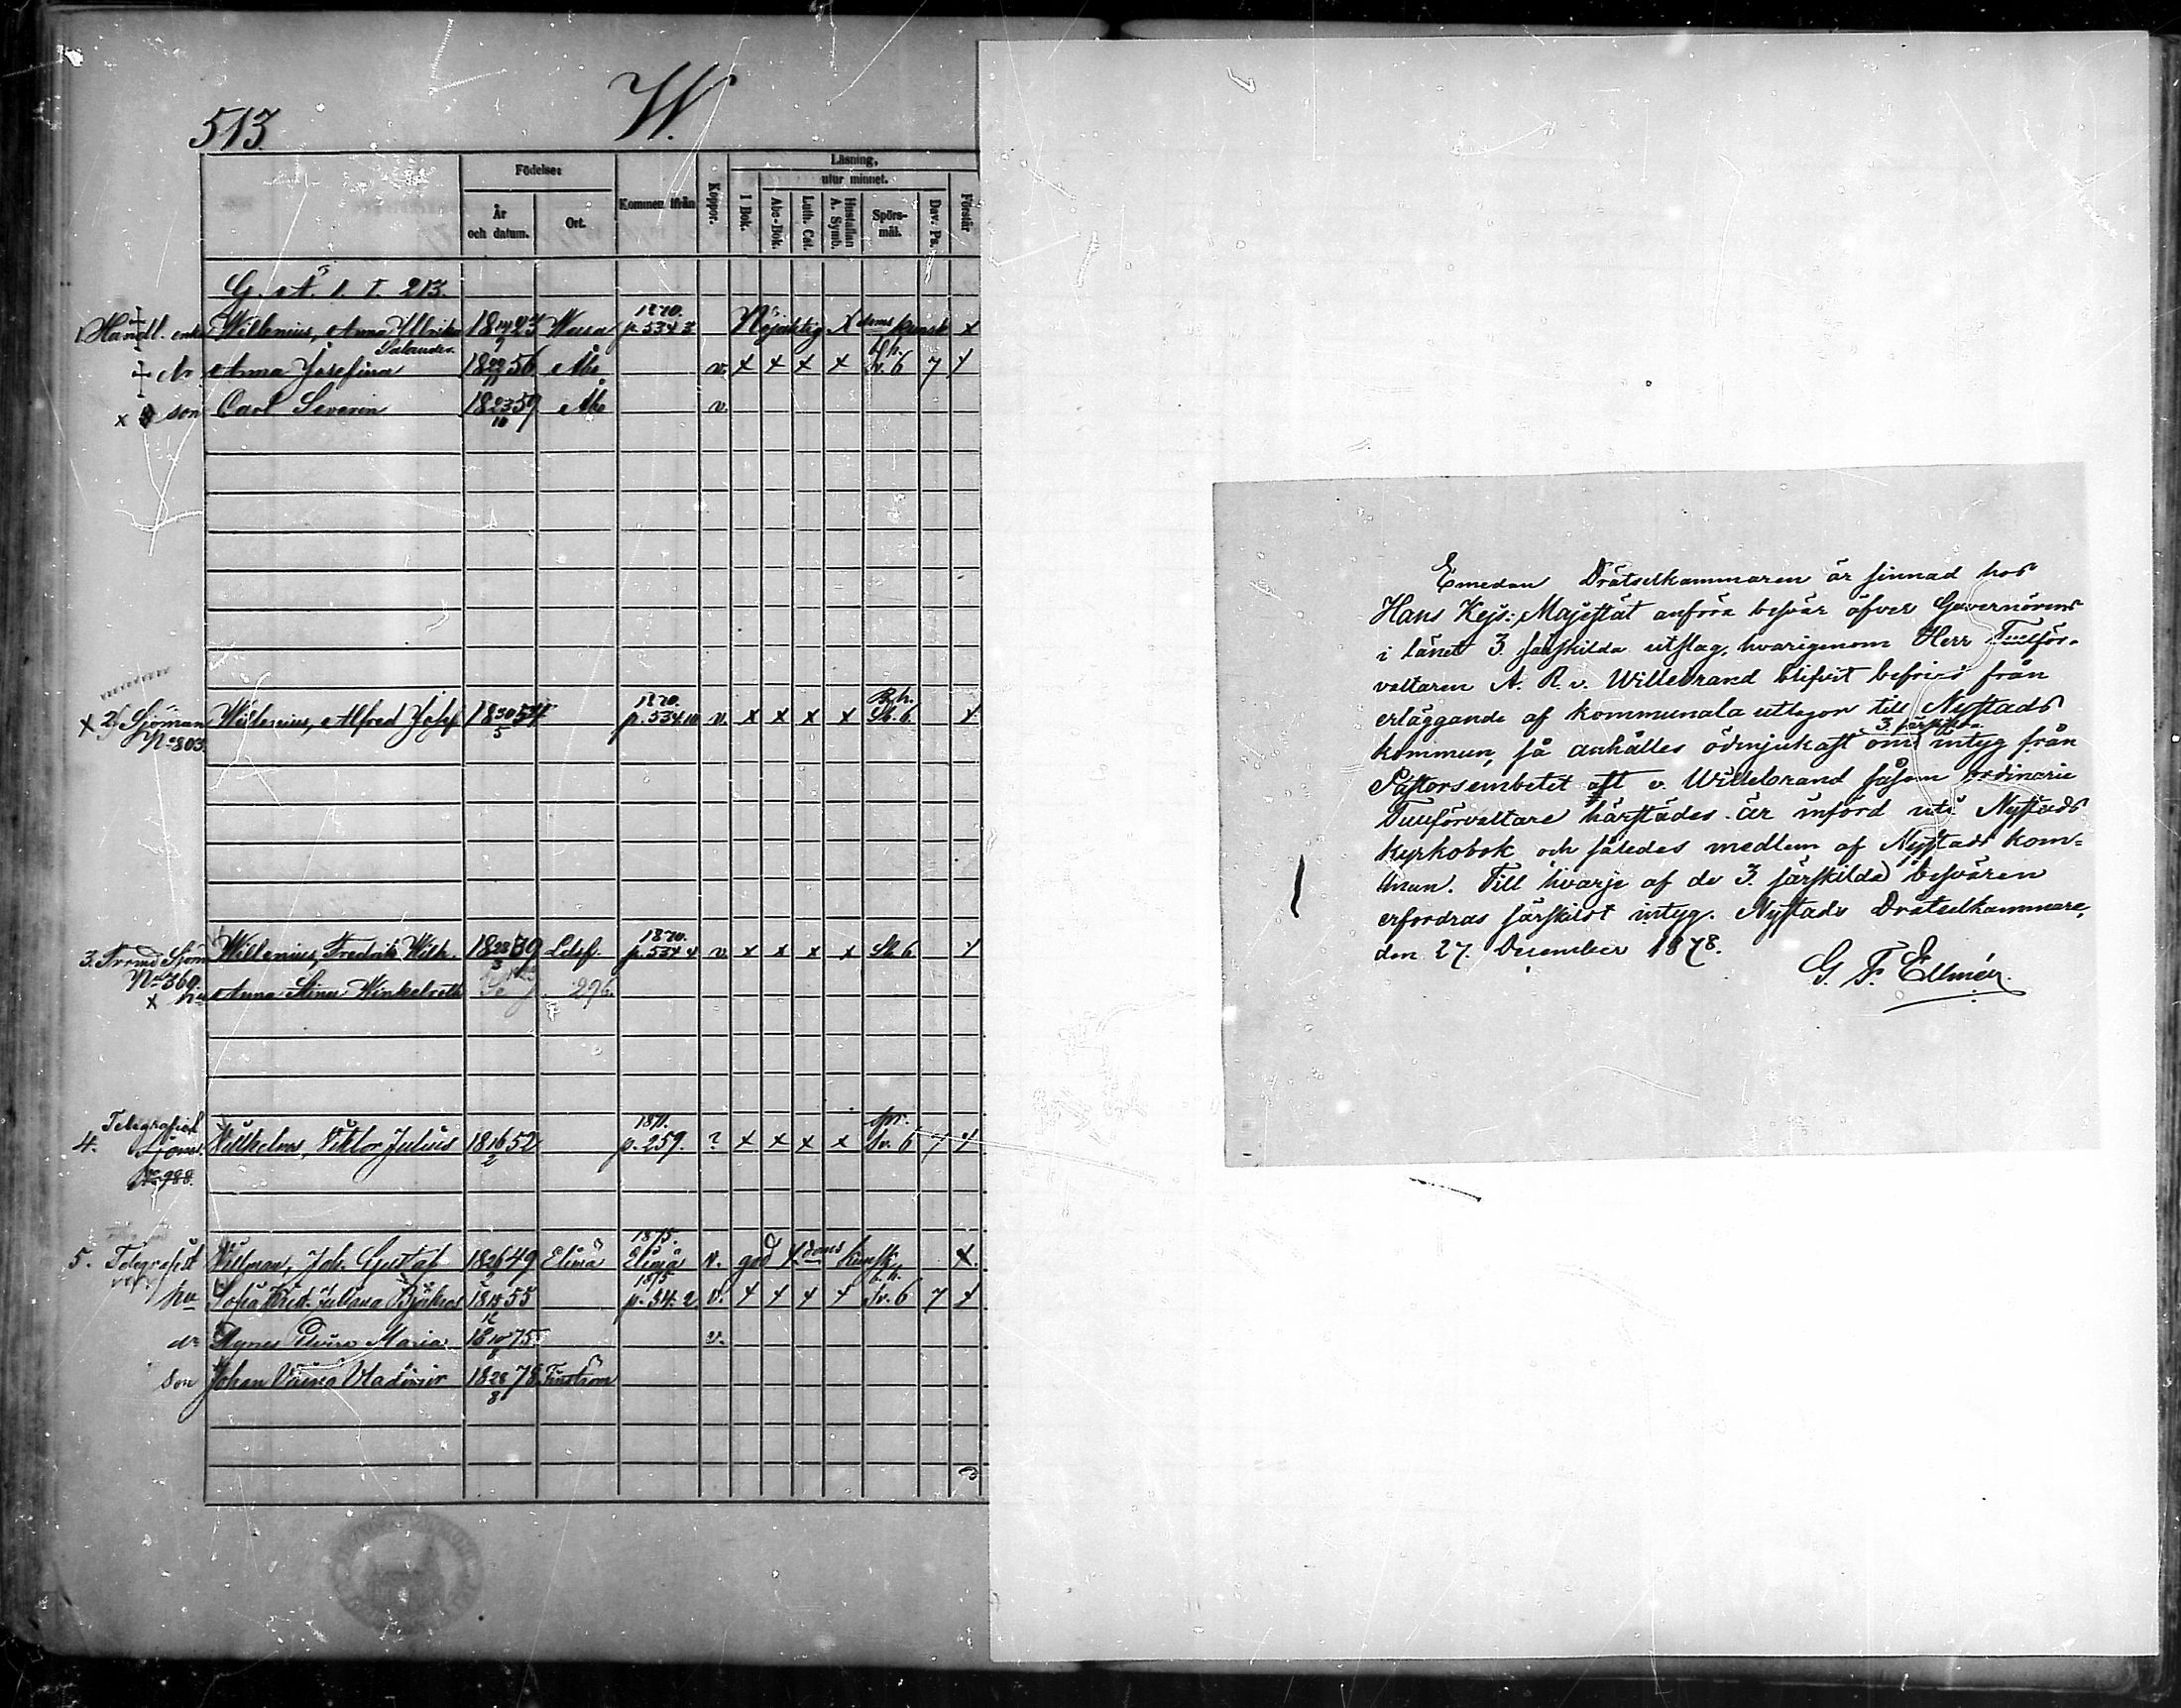 513.
W.
Födelse:
År och datum.
Ort.
Kommen ifrån
Koppor.
Läsning,
utur minnet.
I Bok.
Abc-Bok.
Luth. Cat.
Hustaflan A. Symb.
Spörs-mål.
Dav. Ps.
Förstår
G. A. 1. T. 213.
1. Handl. enka Willenius, Anna Ulrika 18 23 Wasa 1870. p. 534 3 Nöjaktig Xdoms kunsk x
Salander.
dr Anna Josefina 18 56 Åbo v. x x x x Sv. 6 7 x
x son Carl Severin 18 23/10 59 Åbo v.
x 2. Sjöman Willenius, Alfred Josef 18 30/5 54 1870. p. 534 10 v. x x x x Sk. 6 x
No 803
3. Sjöm Willenius, Fredrik Wilh. 18 28/3 39 Ldsf. 1870. p. 534 4 v. x x x x Sk 6 x
No 360.
x hu Anna Stina Winkelroth Se p. 276.
Telegrafist
4. Sjöm. Willhelms, Viktor Julius 18 16/2 52 1871. p. 259. ? x x x x Sv. 6 7 x
No 988.
5. Telegrafist Willman, Joh. Gustaf 18 26 49 Elimä 1875. Elimä v. god Xdoms kunsk. x
hu Sofia Krist. Juliana 18 55 1875 p. 34. 2 v. x x x x Sv. 6 7 x
dr Agnes Maria 18 10/8 75. v.
son Johan Vladimir 18 28/8 78 Finström
Emedan Drätselkammaren är sinnad hos
Hans Kejs: Majestät anföra besvär öfver Guvernörens
i länet 3. särskilda utslag, hvarigenom Herr Tullför-
valtaren A. R. v. Willebrand blifvit befriad från
erläggande af kommunala utlagor till Nystads
3 särskilda
kommun, så anhålles ödmjukast om intyg från
Pastorsembetet att v. Willebrand såsom ordinarie
Tullförvaltare härstädes är införd uti Nystads
kyrkobok och således medlem af Nystads kom-
mun. Till hvarje af de 3. särskilda besvären
erfordras särskildt intyg. Nystads Drätselkammare,
den 27. December 1878.
G. F. Ellmén